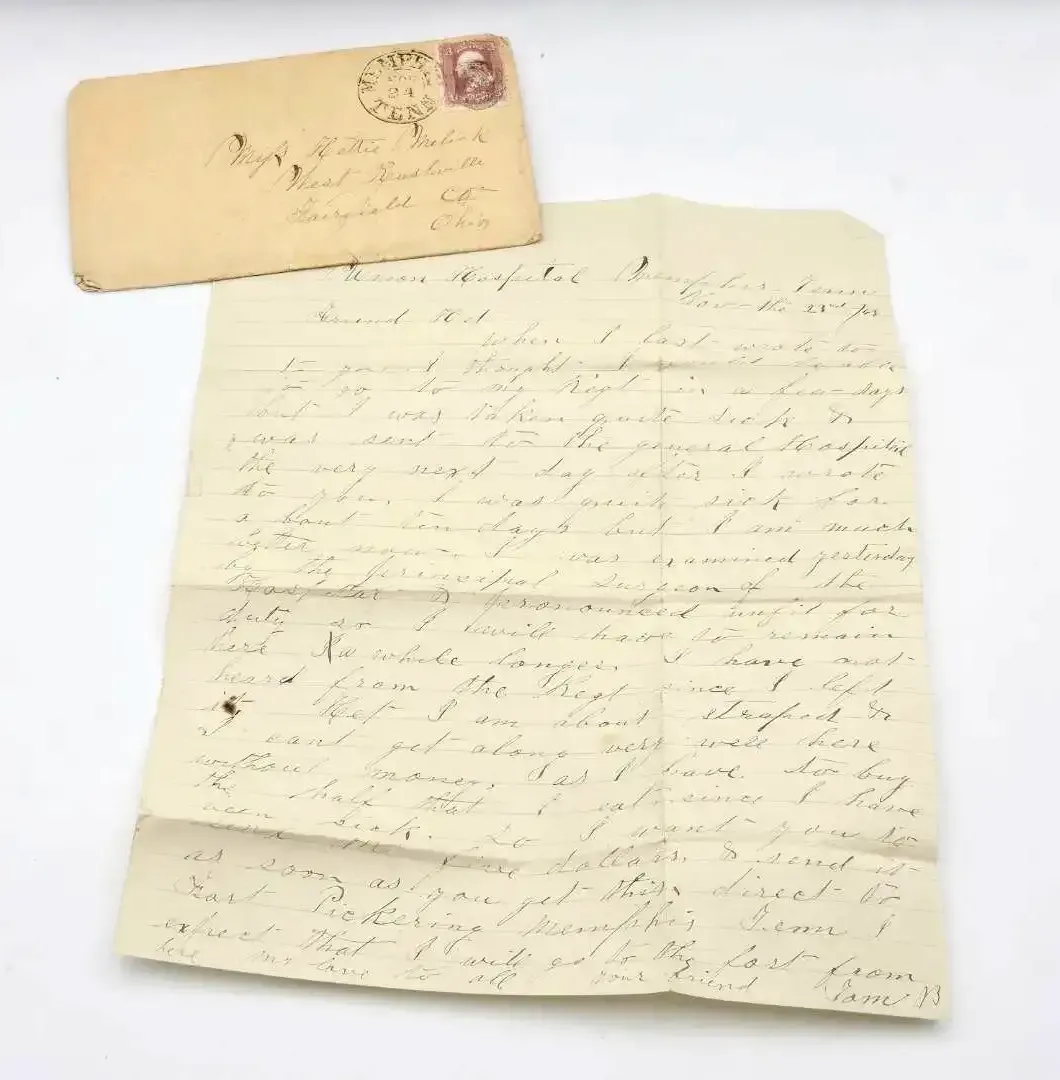 MEMPHIS
NOV
24
TENN
Miss Hettie Melick
West Rushville
Fairfield Co
Ohio
Union Hospital Memphis Tenn
Nov the 23rd
Friend Het
When I last wrote to
to you I thought I would be able
to go to my Regt in a few days
but I was taken quite sick &
was sent to the general Hospital
the very next day after I wrote
to you. I was quite sick for
about ten days but I am much
better now. I was examined yesterday
by the principal surgeon of the
Hospital & pronounced unfit for
duty so I will have to remain
here a while longer. I have not
heard from the Regt since I left
it. Het I am about straped &
I cant get along very well here
without money, as I have to buy
the half that I eat since I have
been sick. So I want you to
send me five dollars. & send it
as soon as you get this direct to
Fort Pickering Memphis Tenn I
expect that I will go to the fort from
here my love to all your friend Tom B